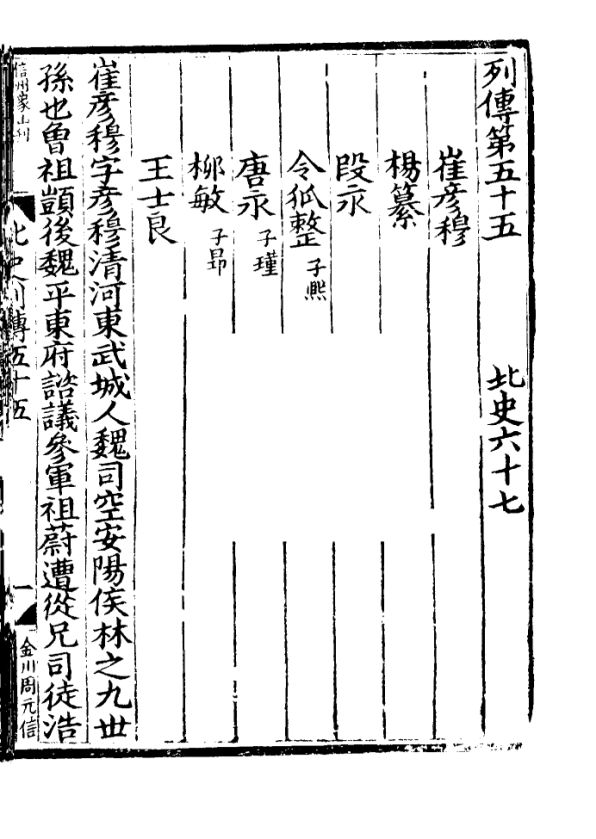 列傳第五十五　北史六十七
崔彦穆
楊纂
段永
令狐整 子熙
唐永 子瑾
柳敏 子昂
王士良
崔彦穆字彦穆清河東武城人魏司空安陽侯林之九世
孫也曾祖顗後魏平東府諮議參軍祖蔚遭從兄司徒浩
信州象山刊
北史列傳五十五
一
金川周元信